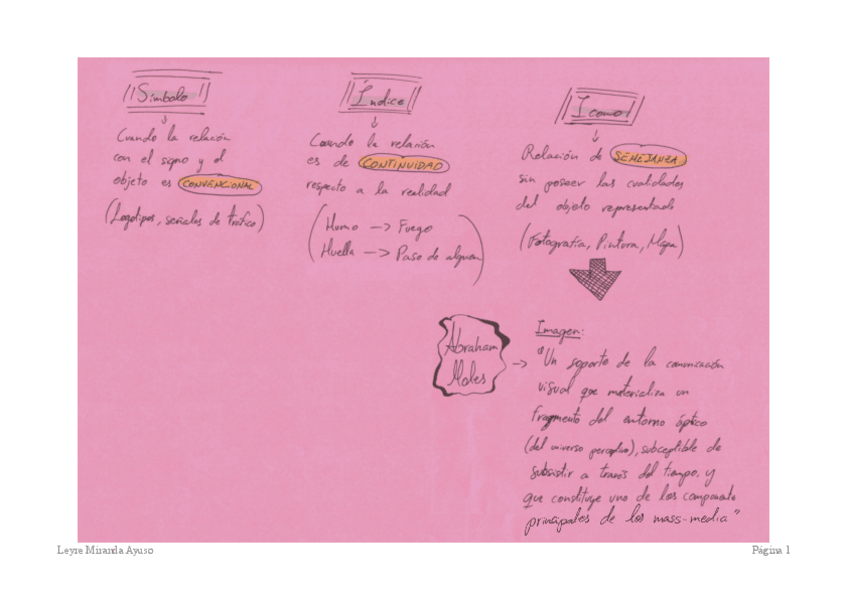 Símbolo
Cuando la relación
con el signo y el
objeto es CONVENCIONAL
(Logotipos, señales de tráfico)
Índice
Cuando la relación
es de CONTINUIDAD
respecto a la realidad
Humo -> Fuego
Huella -> Paso de alguien
Icono
Relación de SEMEJANZA
sin poseer las cualidades
del objeto representado
(Fotografía, Pintura, Mapa)
Abraham
Moles
Imagen:
"Un soporte de la comunicación
visual que materializa un
fragmento del entorno óptico
(del universo perceptivo), subceptible de
subsistir a través del tiempo, y
que constituye uno de los componente
principales de los mass-media"
Leyre Miranda Ayuso
Página 1